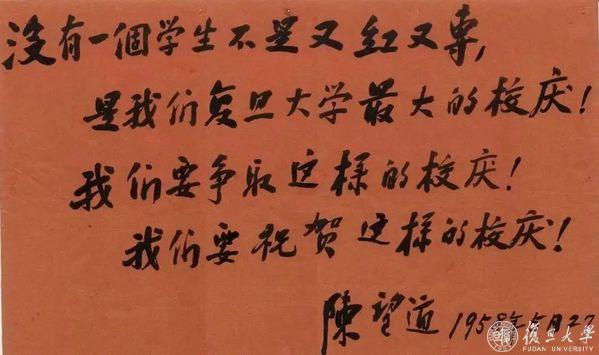 没有一個学生不是又红又専,
是我们复旦大学最大的校庆!
我们要争取这样的校庆!
我们要祝贺这样的校庆!
陳望道 1958年5月27
復旦大學
FUDAN UNIVERSITY